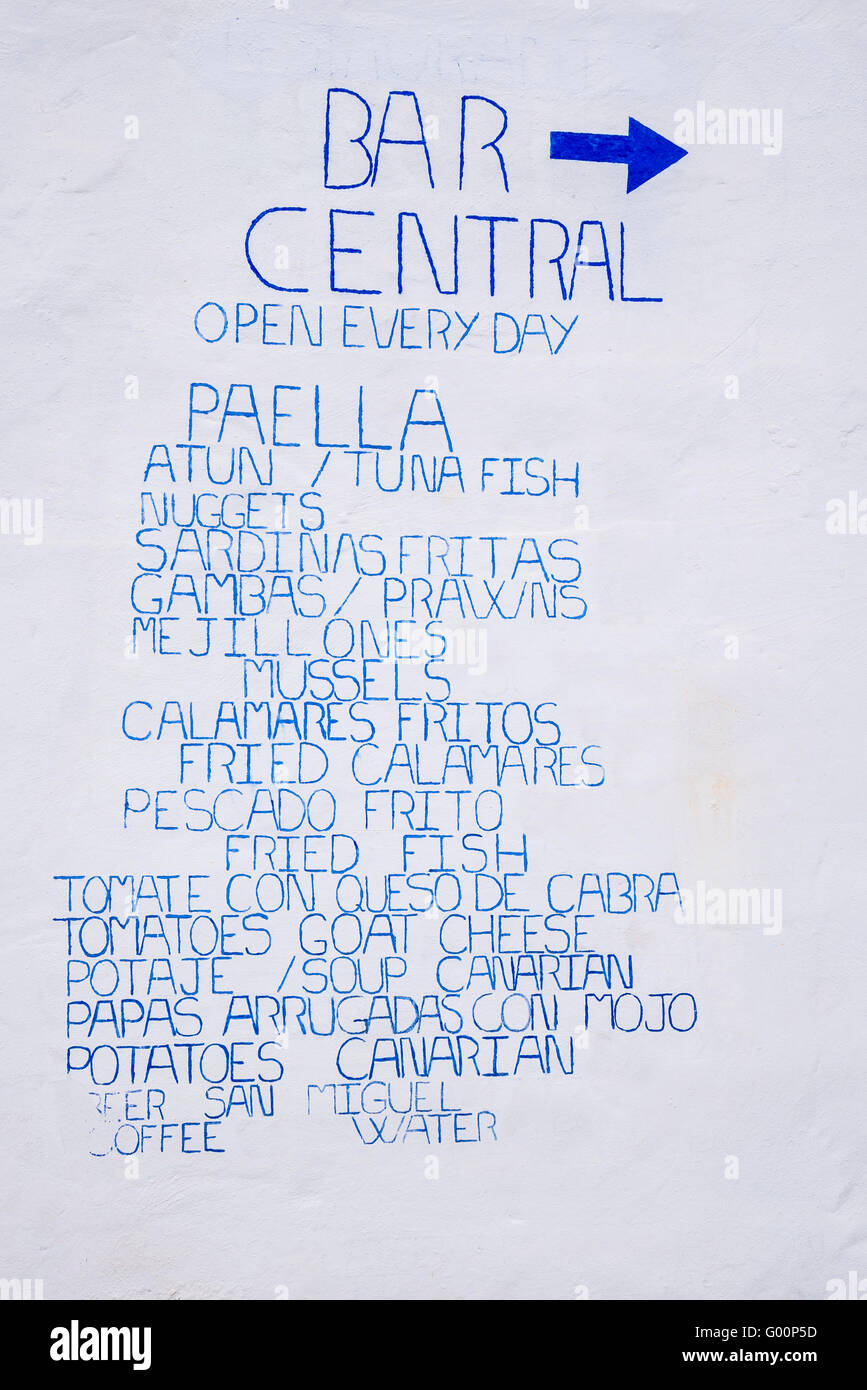 BAR
CENTRAL
OPEN EVERY DAY
PAELLA
ATUN / TUNA FISH
NUGGETS
SARDINAS FRITAS
GAMBAS / PRAWNS
MEJILLONES
MUSSELS
CALAMARES FRITOS
FRIED CALAMARES
PESCADO FRITO
FRIED FISH
TOMATE CON QUESO DE CABRA
TOMATOES GOAT CHEESE
POTAJE / SOUP CANARIAN
PAPAS ARRUGADAS CON MOJO
POTATOES CANARIAN
BEER SAN MIGUEL
COFFEE WATER
alamy
Image ID: G00P5D
www.alamy.com